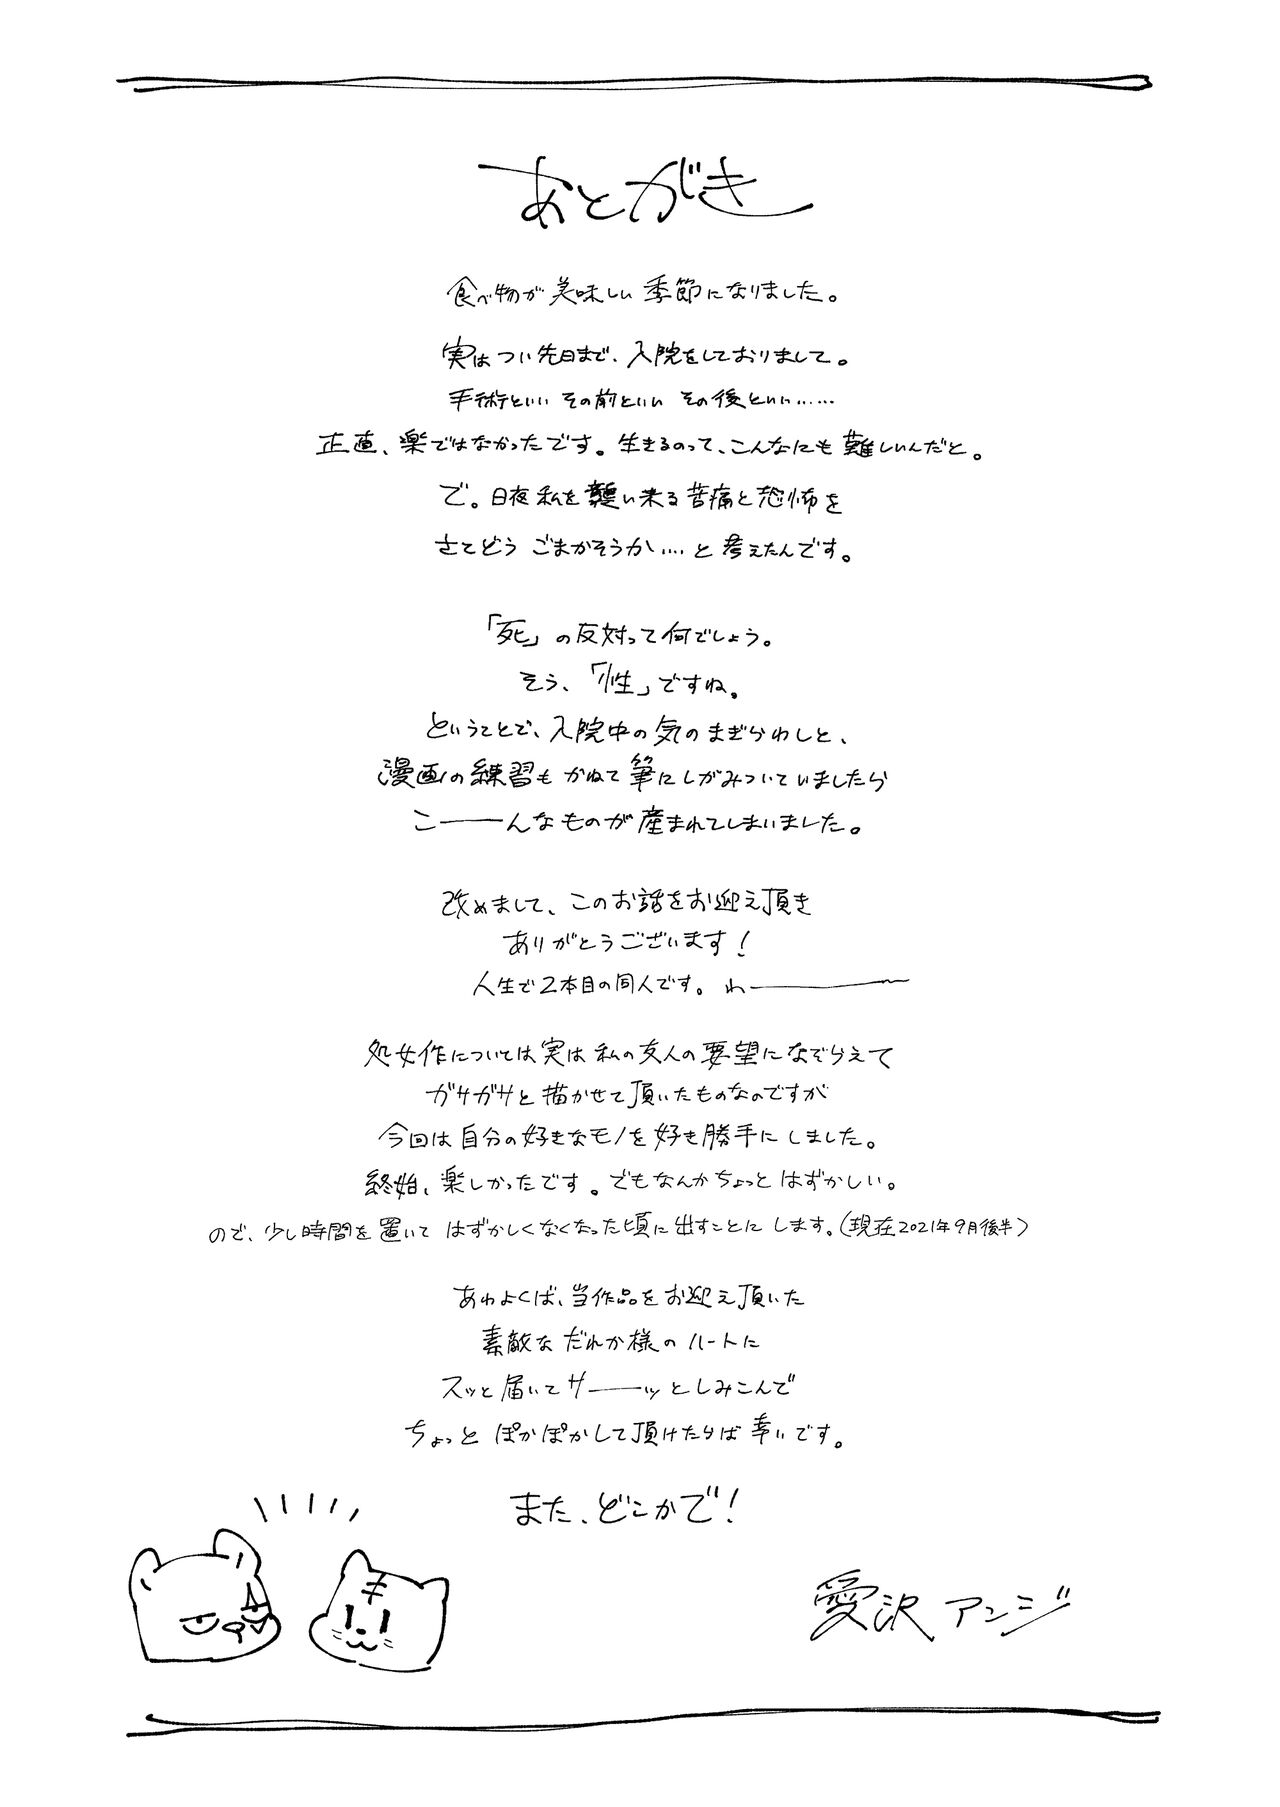 あとがき
食べ物が美味しい季節になりました。
実はつい先日まで、入院をしておりまして。
手術といい その前といい その後といい……
正直、楽ではなかったです。生きるのって、こんなにも難しいんだと。
で。日夜私を襲い来る苦痛と恐怖を
さてどう ごまかそうか….と考えたんです。
「死」の反対って何でしょう。
そう、「性」ですね。
ということで、入院中の気のまぎらわしと、
漫画の練習も かねて筆にしがみついていましたら
こ――んなものが産まれてしまいました。
改めまして、このお話をお迎え頂き
ありがとうございます!
人生で2本目の同人です。わ――――
処女作については実は私の友人の要望になぞらえて
ガサガサと描かせて頂いたものなのですが
今回は自分の好きなモノを好き勝手にしました。
終始、楽しかったです。でもなんかちょっとはずかしい。
ので、少し時間を置いて はずかしくなくなった頃に出すことにします。(現在2021年9月後半)
あわよくば、当作品をお迎え頂いた
素敵なだれか様のハートに
スッと届いてサ――ッとしみこんで
ちょっと ぽかぽかして頂けたらば幸いです。
また、どこかで!
愛沢アンジ